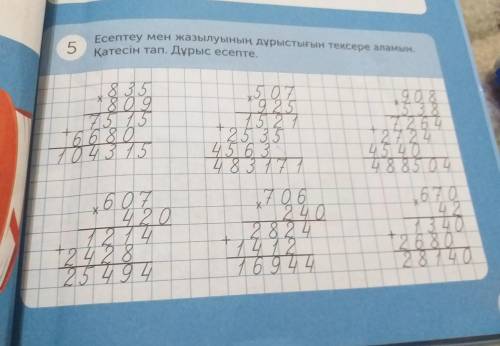 5
Есептеу мен жазылуының дұрыстығын тексере аламын.
Қатесін тап. Дұрыс есепте.
×835
809
7515
+6680
104315
×507
925
1521
+2535
4563
483171
×908
538
7264
+2424
4540
488504
×607
420
1214
+2428
25494
×706
240
2824
+1412
16944
×670
42
1340
+2680
28140